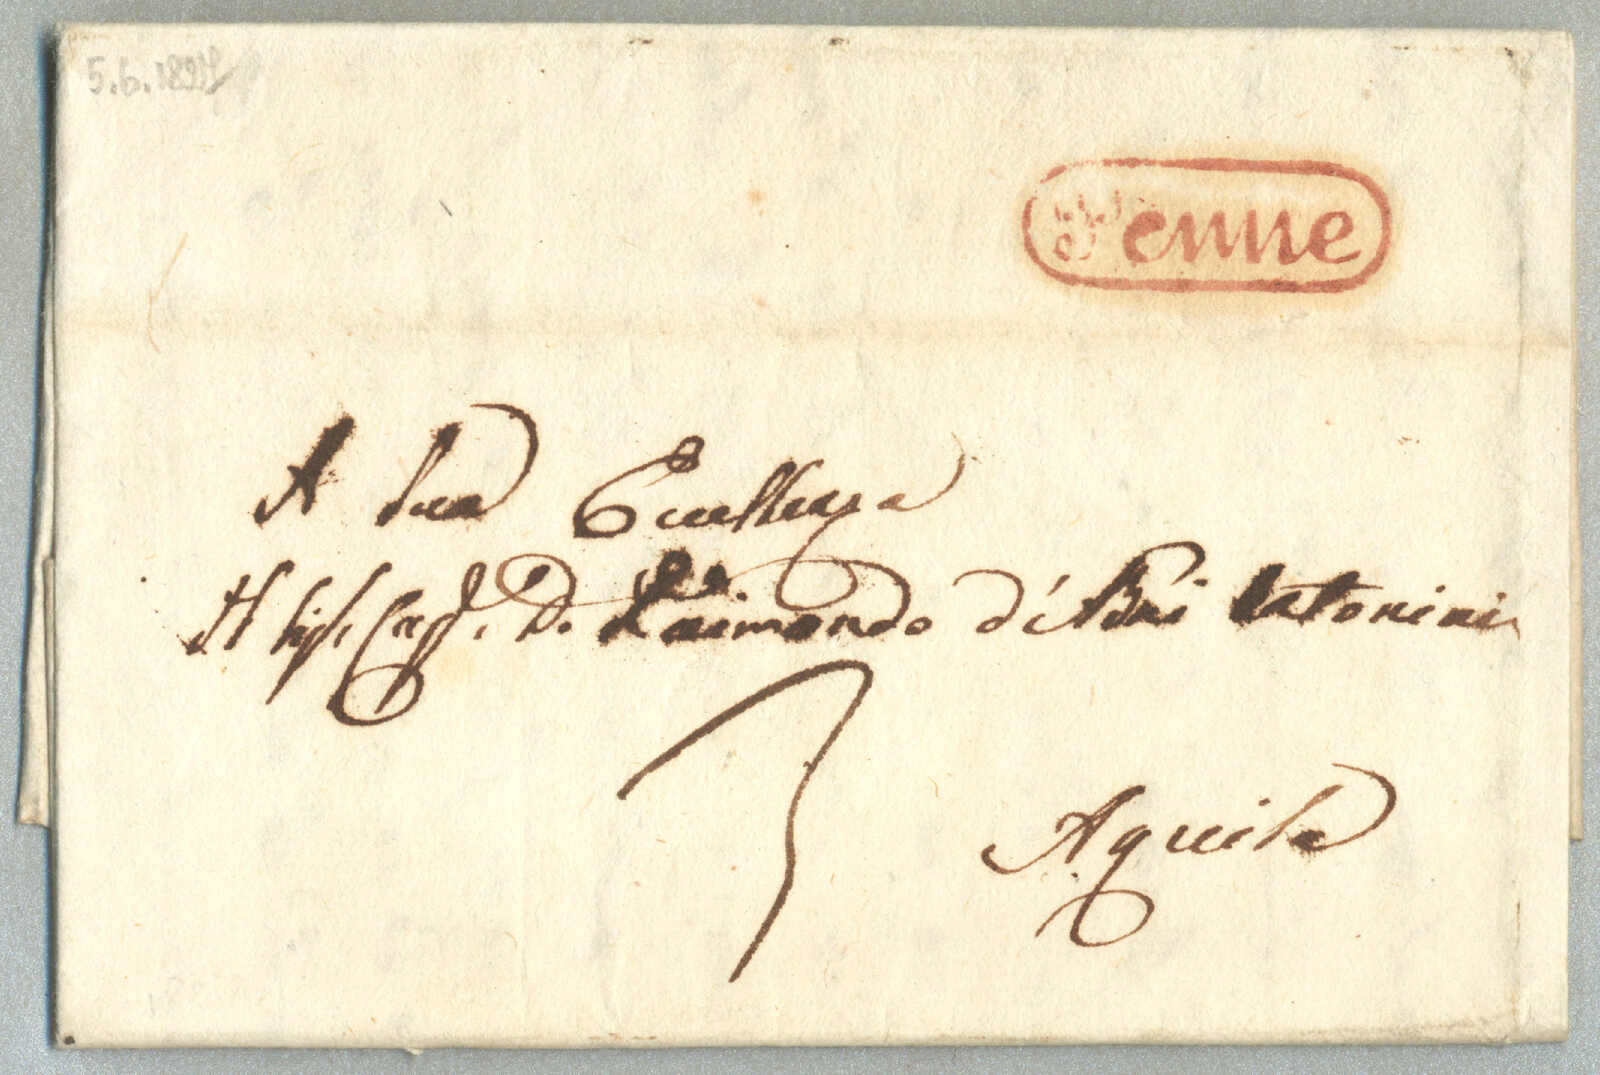 5.6.1824
Penne
A Sua Eccellenza
Il Sig. Cav. D. Raimondo de' Bni Antonini
3
Aquila